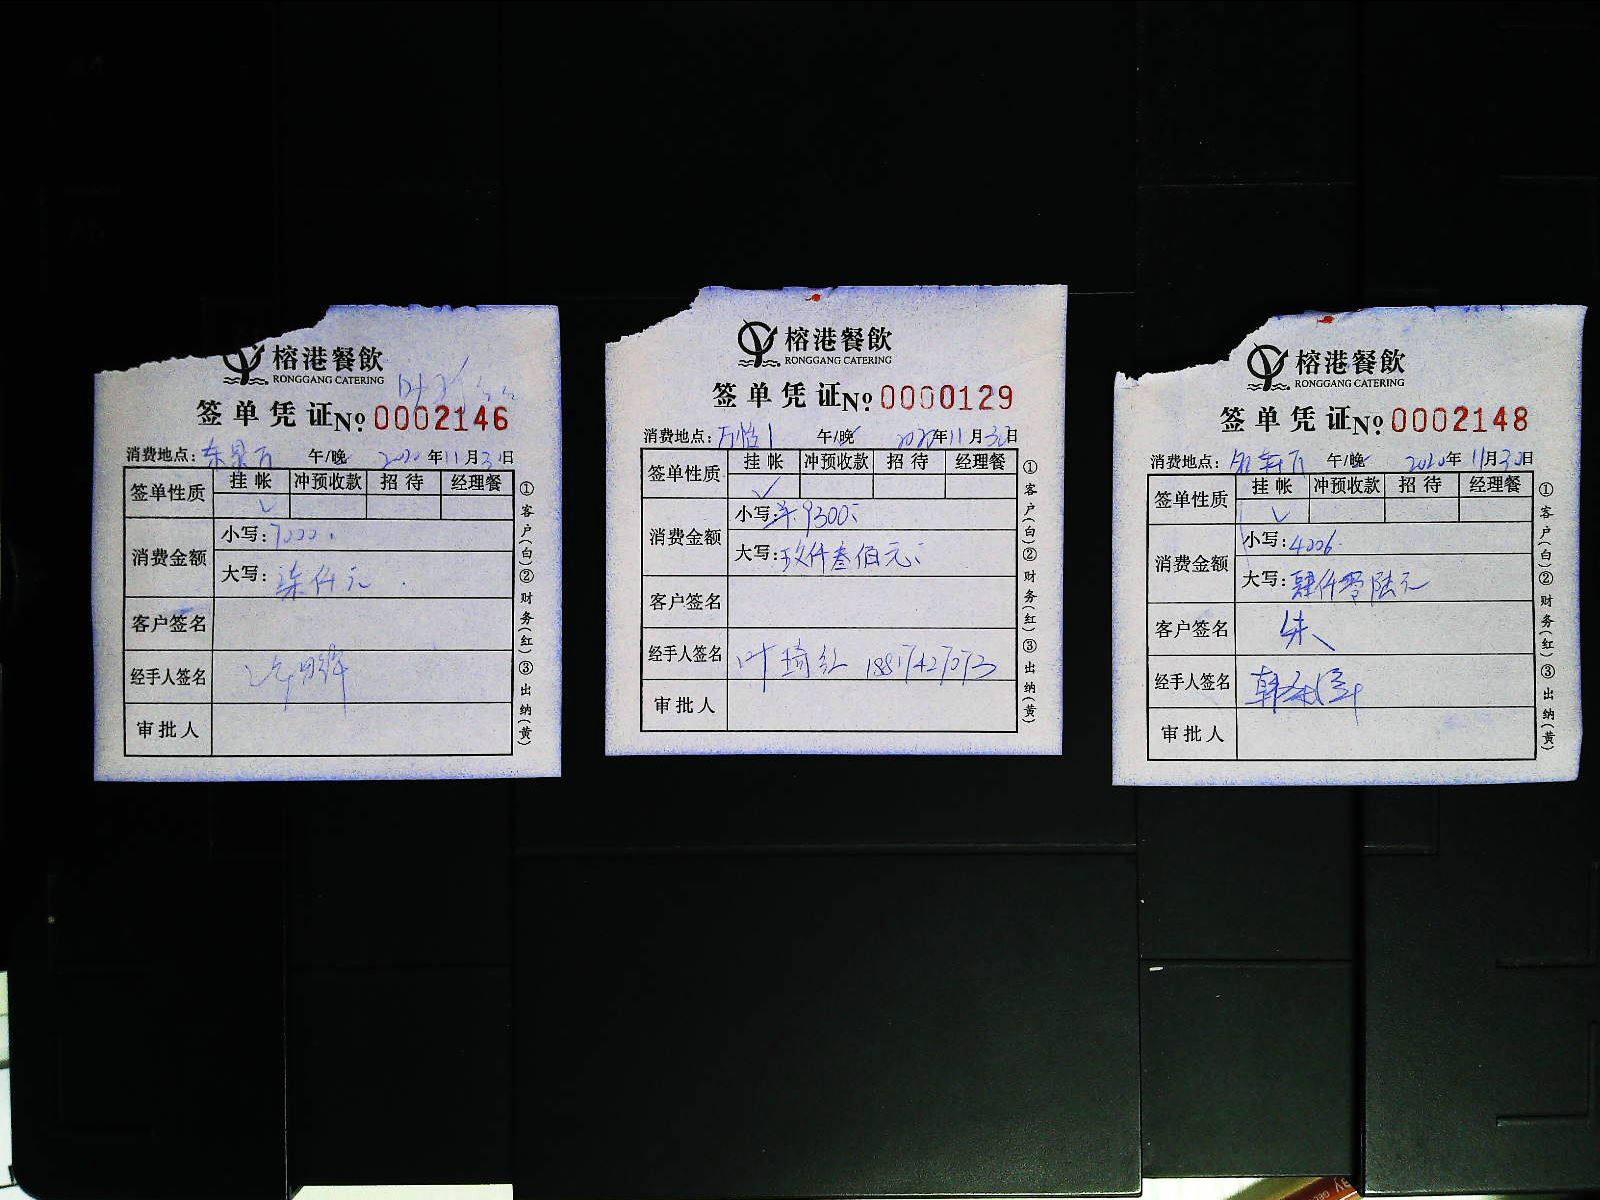 榕港餐飲
RONGGANG CATERING
签单凭证 No 0002146
消费地点: 午/晚 2020年11月30日
签单性质 挂帐 冲预收款 招待 经理餐
✓
消费金额 小写: 7000
大写: 柒仟元
客户签名
经手人签名
审批人
①客户(白)②财务(红)③出纳(黄)
榕港餐飲
RONGGANG CATERING
签单凭证 No 0000129
消费地点: 午/晚 2020年11月30日
签单性质 挂帐 冲预收款 招待 经理餐
✓
消费金额 小写: 9300
大写: 玖仟叁佰元
客户签名
经手人签名 叶琦红 18817427073
审批人
①客户(白)②财务(红)③出纳(黄)
榕港餐飲
RONGGANG CATERING
签单凭证 No 0002148
消费地点: 午/晚 2020年11月30日
签单性质 挂帐 冲预收款 招待 经理餐
✓
消费金额 小写: 4006
大写: 肆仟零陆元
客户签名 朱
经手人签名
审批人
①客户(白)②财务(红)③出纳(黄)